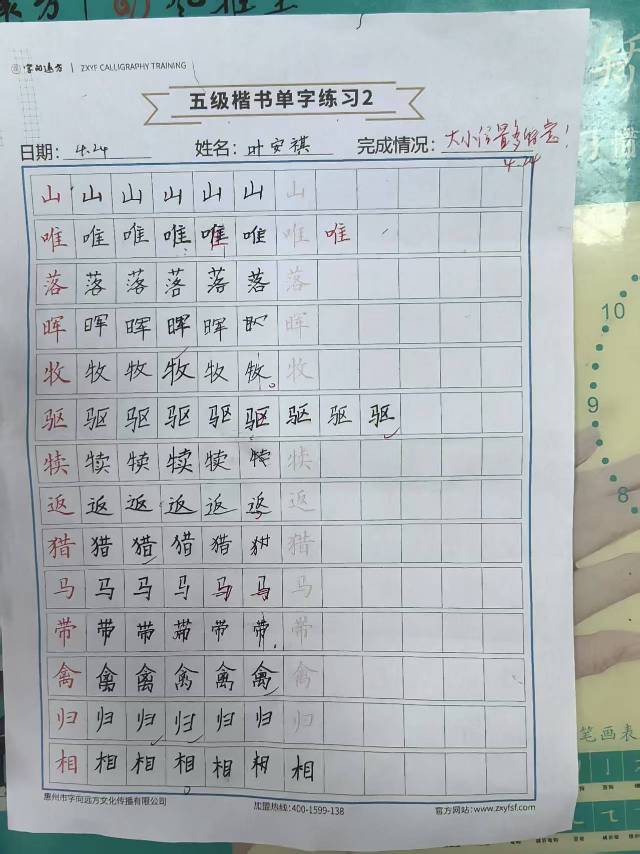 字向远方 | ZXYF CALLIGRAPHY TRAINING
五级楷书单字练习2
日期: 4.24 姓名: 叶安祺 完成情况: 大小位置
4.24
山 山 山 山 山 山 山
唯 唯 唯 唯 唯 唯 唯 唯
落 落 落 落 落 落 落
晖 晖 晖 晖 晖 晖
牧 牧 牧 牧 牧 牧 牧
驱 驱 驱 驱 驱 驱 驱 驱 驱
犊 犊 犊 犊 犊 犊 犊
返 返 返 返 返 返 返
猎 猎 猎 猎 猎 猎 猎
马 马 马 马 马 马 马
带 带 带 带 带 带 带
禽 禽 禽 禽 禽 禽 禽
归 归 归 归 归 归 归
相 相 相 相 相 相 相
惠州市字向远方文化传播有限公司 加盟热线:400-1599-138 官方网站:www.zxyfsf.com
10
9
8
笔画表